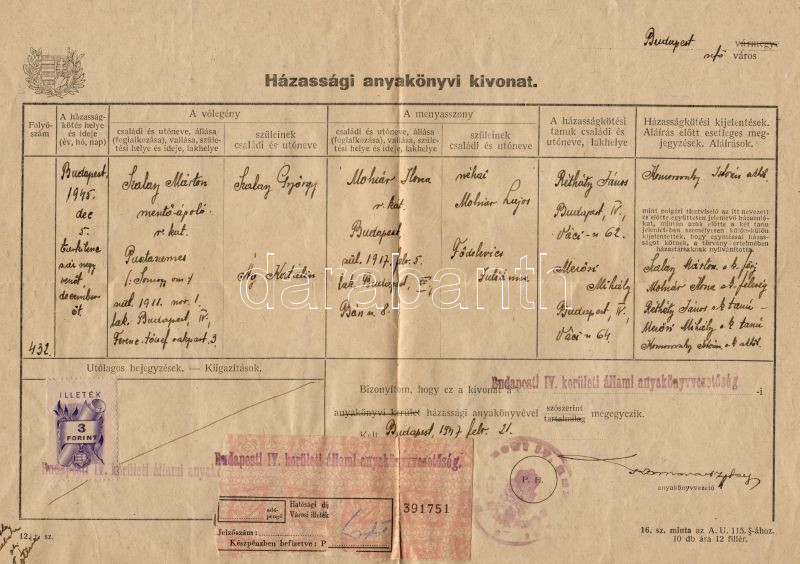 Budapest vármegye
város
Házassági anyakönyvi kivonat.
Folyó-
szám
A házasság-
kötés helye
és ideje
(év, hó, nap)
A vőlegény
családi és utóneve, állása
(foglalkozása), vallása, szüle-
tési helye és ideje, lakhelye
szüleinek
családi és utóneve
A menyasszony
családi és utóneve, állása
(foglalkozása), vallása, szüle-
tési helye és ideje, lakhelye
szüleinek
családi és utóneve
A házasságkötési
tanuk családi és
utóneve, lakhelye
Házasságkötési kijelentések.
Aláírás előtt esetleges meg-
jegyzések. Aláírások.
432.
Budapest,
1945.
dec
5.
Ezerkilenc
száz negy
venöt
december
öt
Szalay Márton
mentő-ápoló
r. kat.
Pusztanemes
(Somogy vm)
szül. 1911. nov. 1.
lak. Budapest, IV.
Ferenc József rakpart 3
Szalay György
Katalin
Molnár Ilona
r. kat.
Budapest
szül. 1917. febr. 5.
lak. Budapest, IV.
néhai
Molnár Lajos
Julianna
Rétháty János
Budapest, IV.,
Váci u 62.
Merőn
Mihály
Budapest, IV.,
Váci u 64.
István
mint polgári tisztviselő az itt nevezett
és előtte együttesen jelenlevő házasuló-
kat, miután azok előtte a két tanu
jelenlétében személyesen külön-külön
kijelentették, hogy egymással házas-
ságot kötnek, a törvény értelmében
házastársaknak nyilvánította.
Szalay Márton s.k. férj
Molnár Ilona s.k. feleség
Rétháty János s.k. tanú
Merőn Mihály s.k. tanú
István s.k.
darabanth
Utólagos bejegyzések. — Kiigazítások.
ILLETÉK
3
FORINT
Budapesti IV. kerületi állami
Bizonyítom, hogy ez a kivonat a Budapesti IV. kerületi állami anyakönyvvezetőség. -i
anyakönyvi kerület házassági anyakönyvével szószerint
tartalmilag megegyezik.
Kelt Budapest, 1947 febr. 21.
Budapesti IV. kerületi állami anyakönyvvezetőség.
P. H.
anyakönyvvezető
Hatósági díj
Városi illeték
adó-
pengő
Jelzőszám:
Készpénzben befizetve: P
391751
16. sz. minta az A. U. 115. §-ához.
10 db ára 12 fillér.